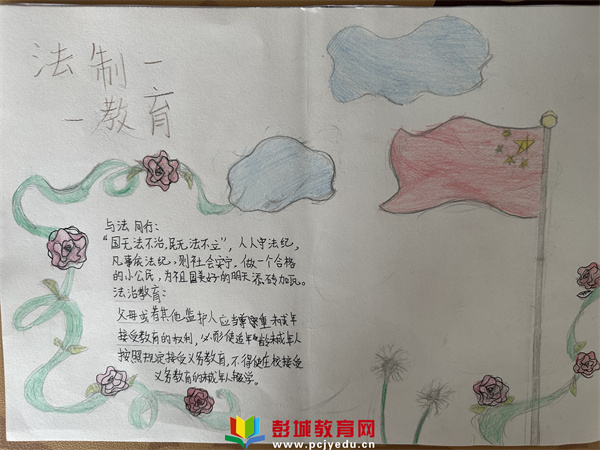 法制一
一教育
与法同行:
“国无法不治,民无法不立”,人人守法纪,
凡事依法纪,则社会安宁,做一个合格
的小公民,为祖国美好的明天添砖加瓦。
法治教育:
父母或者其他监护人应当尊重未成年
接受教育的权利,必须使适年龄未成年人
按照规定接受义务教育,不得使在校接受
义务教育的未成年人辍学。
彭城教育网
www.pcjyedu.cn